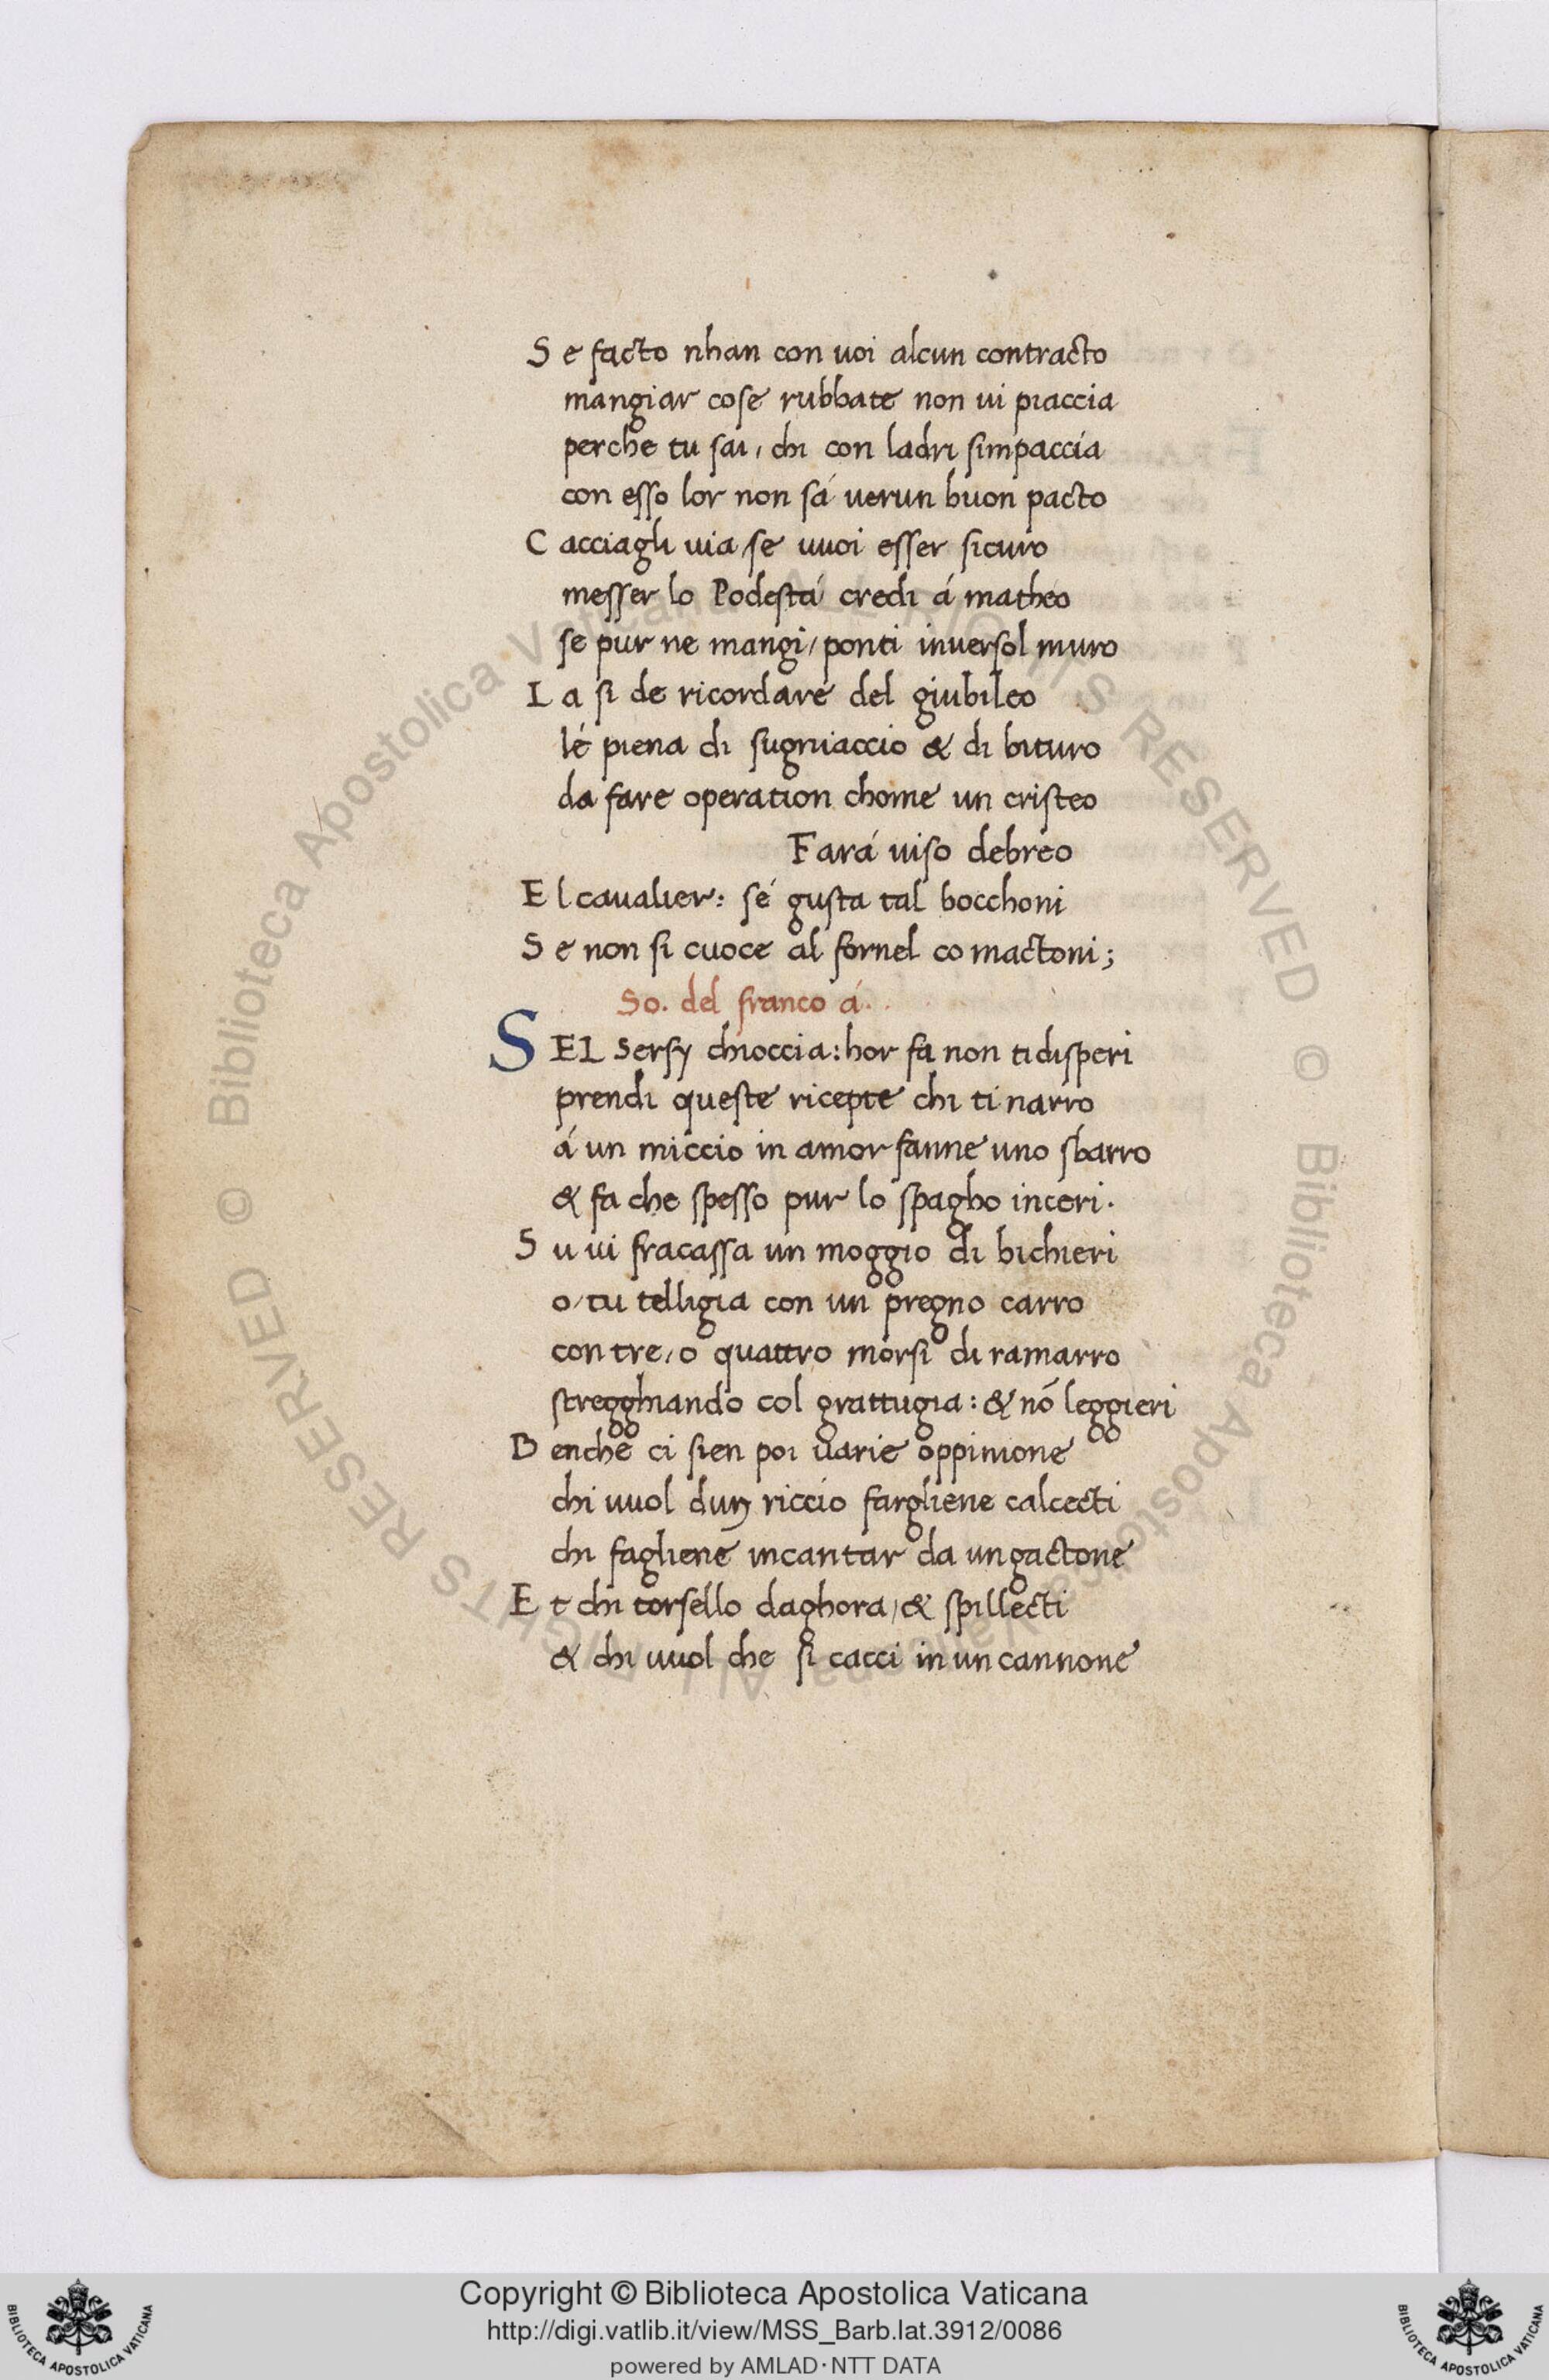 Se facto nhan con uoi alcun contracto
mangiar cose rubbate non ui piaccia
perche tu sai, chi con ladri simpaccia
con esso lor non sá uerun buon pacto
Cacciagli uia/se uuoi esser sicuro
messer lo Podestá credi á matheo
se pur ne mangi/ponti inuersol muro
La si de ricordare del giubileo
lé piena di sugniaccio & di bituro
da fare operation chome un cristeo
Fará uiso debreo
El caualier: sé gusta tal bocchoni
Se non si cuoce al fornel co mactoni;
So. del franco á.
SEL Sersy chioccia: hor fa non tidisperi
prendi queste ricepte chi ti narro
á un miccio in amor fanne uno sbarro
& fa che spesso pur lo spagho inceri.
Su ui fracassa un moggio di bichieri
o/tu telligia con un pregno carro
con tre, o quattro morsi di ramarro
stregghiando col grattugia: & nō leggieri
Benche ci sien poi uarie oppinione
chi uuol dun riccio fargliene calcecti
chi fagliene incantar da un gactone
Et chi torsello daghora/& spillecti
& chi uuol che si cacci in un cannone
© Biblioteca Apostolica Vaticana ALL RIGHTS RESERVED © Biblioteca Apostolica Vaticana ALL RIGHTS RESERVED
Copyright © Biblioteca Apostolica Vaticana
http://digi.vatlib.it/view/MSS_Barb.lat.3912/0086
powered by AMLAD·NTT DATA
BIBLIOTECA APOSTOLICA VATICANA
BIBLIOTECA APOSTOLICA VATICANA